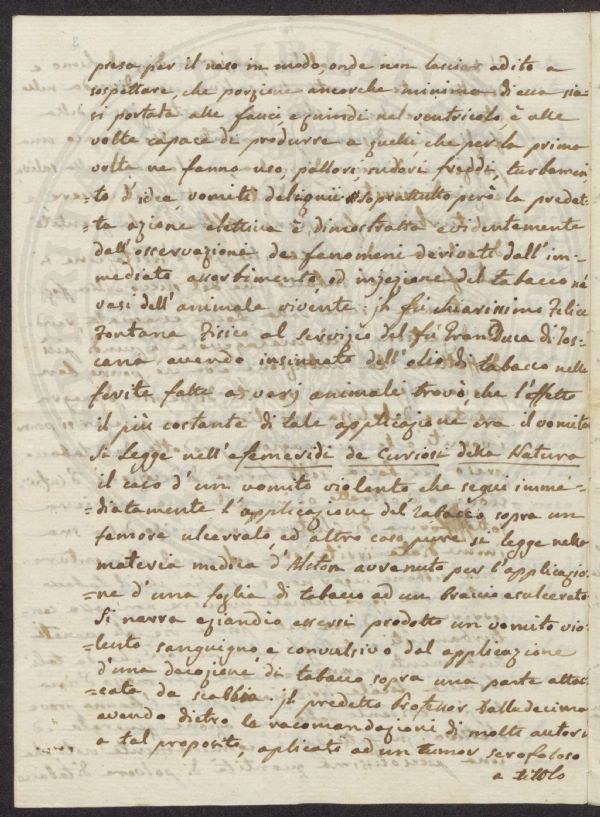 presa per il naso in modo, onde non lasciar adito a
sospettare, che porzione ancorchè minima di essa sia=
si portata alle fauci e quindi nel ventricolo è alle
volte capace di produrre a quelli, che per la prima
volta ne fanno uso, pallori sudori freddi, turbamen=
to d'idee, vomiti deliquii soprattutto però la predet=
=ta azione elettiva è dimostrata evidentemente
dall'osservazione de fenomeni derivati dall'im=
mediato assorbimento, od injezione del tabacco nè
vasi dell'animale vivente. Il fù chiarissimo Felice
Fontana Fisico al servizio del fù Gran Duca di Tos=
cana avendo insinuato dell'olio di tabacco nelle
ferite fatte a varj animali trovò, che l'effetto
il più costante di tale applicazione era il vomito
Si legge nell'efemeridi de Curiosi della Natura
il caso d'un vomito violento che seguì imme=
=diatamente l'applicazione del tabacco sopra un
femore ulcerrato, ed altro caso pure si legge nella
materia medica d'Alston avvenuto per l'applicazio=
=ne d'una foglia di tabacco ad un braccio esulcerato.
Si narra eziandio essersi prodotto un vomito vio=
=lento sanguigno e convulsivo dal applicazione
d'una decozione di tabacco sopra una parte attac=
=cata da scabbia. Il predetto Professor Dalladecima
avendo dietro le racomandazioni di molti autori
a tal proposito, aplicato ad un tumor scrofoloso
a titolo